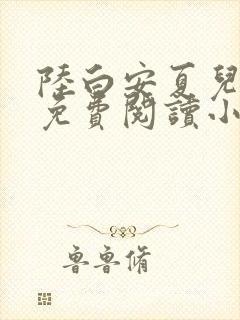 陸白安夏兒
免費閱讀小
魯魯脩